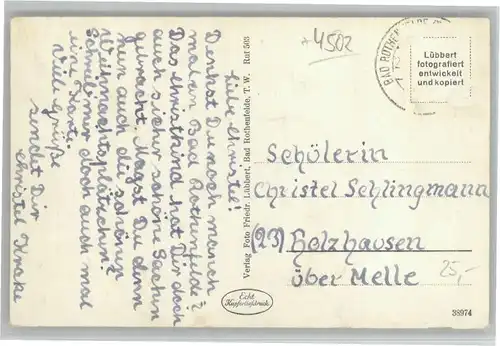 Liebe Christel!
Denkst Du noch manch
mal an Bad Rothenfelde?
Das Christkind hat Dir doch
auch sicher schöne Sachen
gebracht. Magst Du denn
nun auch die schönen
Weihnachtsplätzchen?
Schreib mir doch auch mal
eine Karte.
Viele Grüße
sendet Dir
Christel
Verlag Foto Friedr. Lübbert, Bad Rothenfelde, T. W. Ruf 505
4502
BAD ROTHENFELDE
Lübbert
fotografiert
entwickelt
und kopiert
Schülerin
Christel Schlingmann
(23) Holzhausen
über Melle
25,-
Echt
Kupfertiefdruck
38974